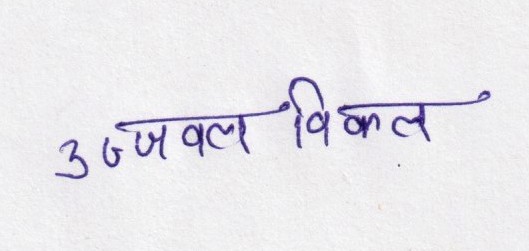 उज्जवल विकल